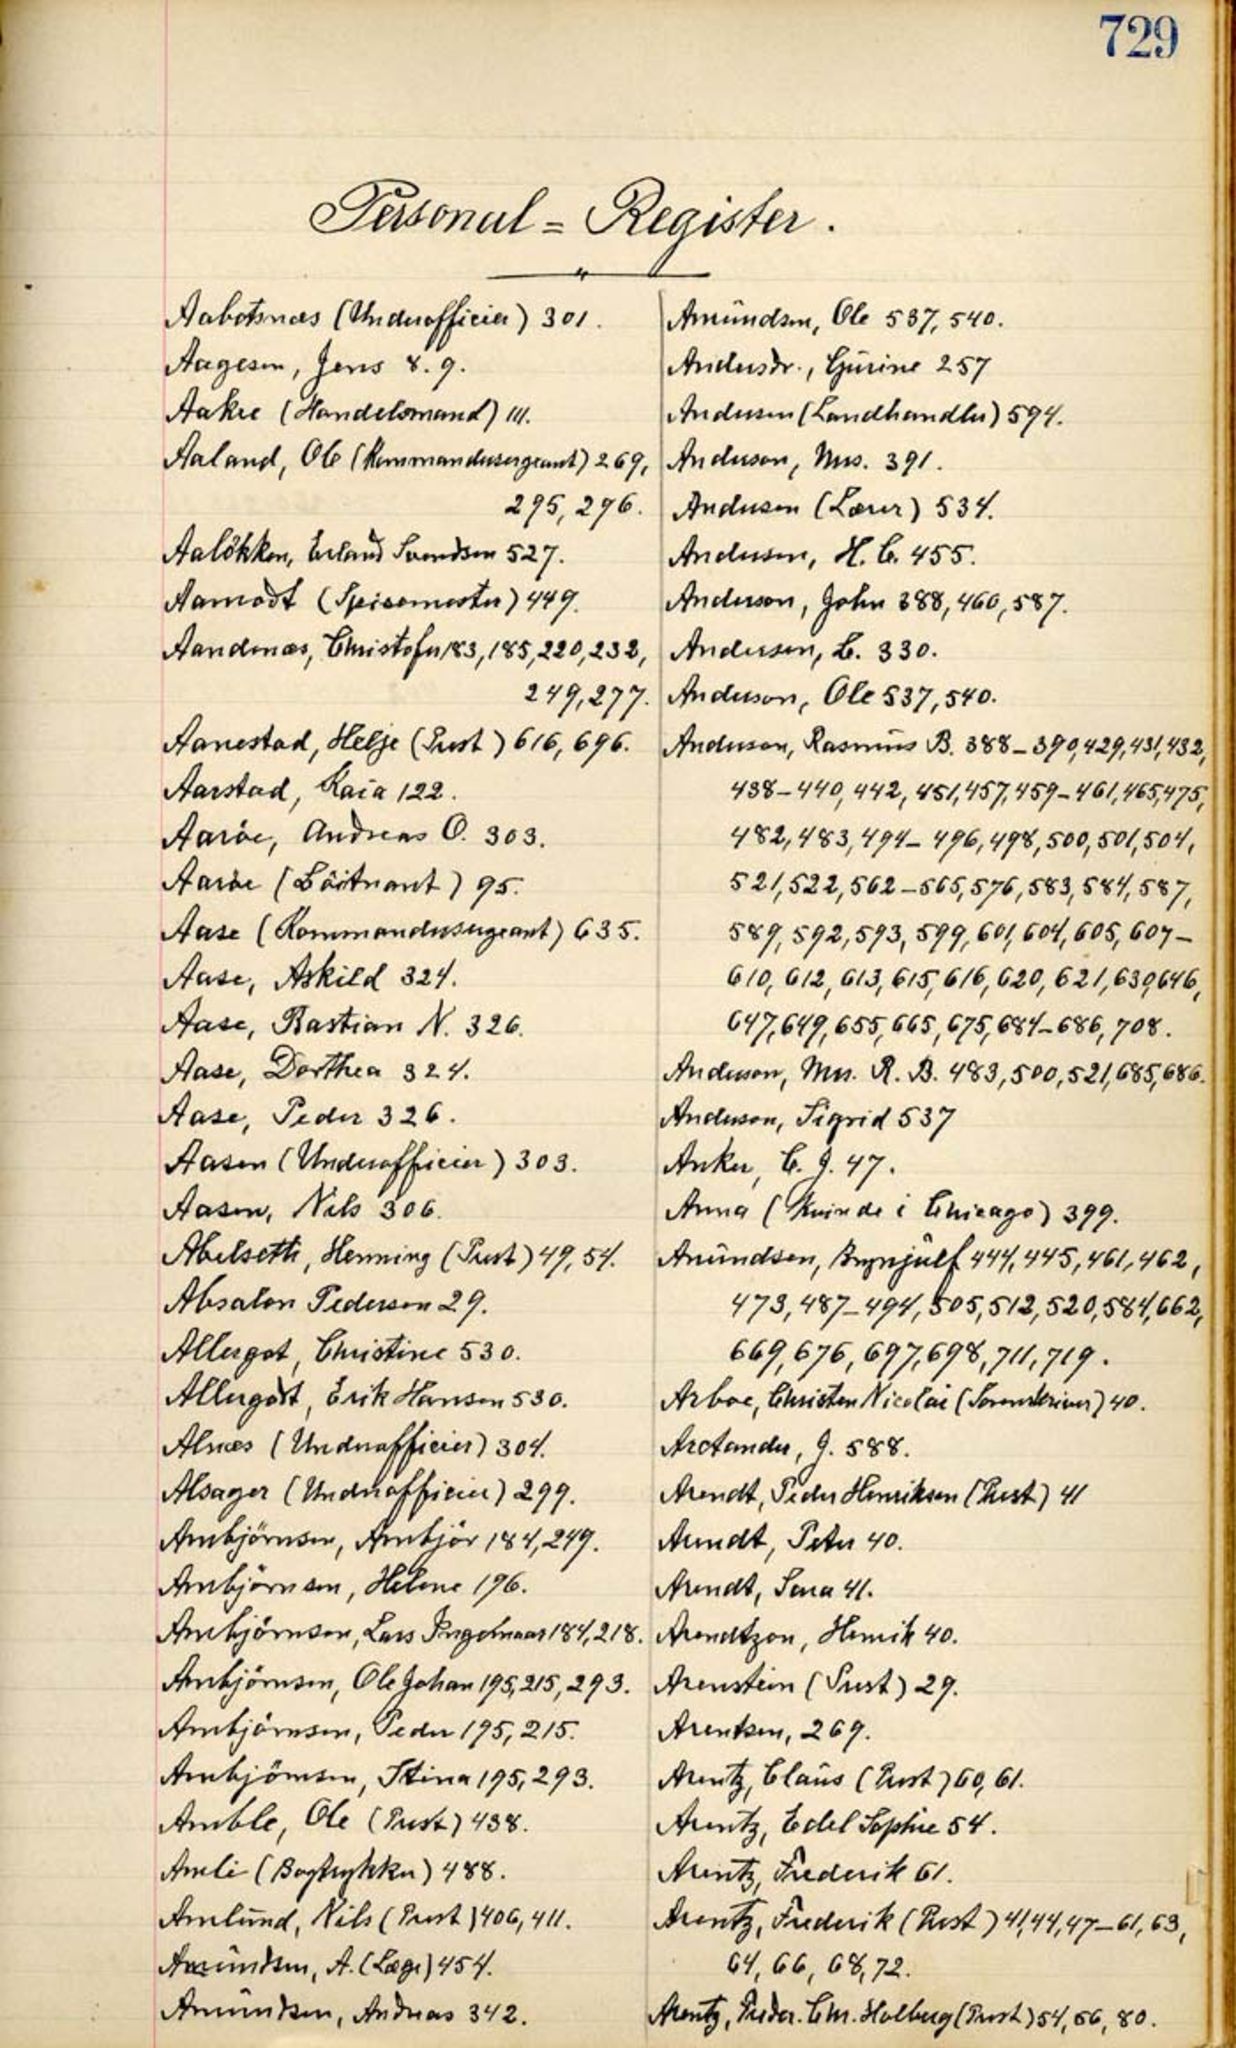 729
Personal = Register.
Aabotsnæs (Underofficier) 301.
Aagesen, Jens 8. 9.
Aakre (Handelsmand) 111.
Aaland, Ole (Kommandersergeant) 269,
295, 296.
Aalökken, Erland Svendsen 527.
Aamodt (Spisemester) 449.
Aandenæs, Christofer 183, 185, 220, 232,
249, 277.
Aanestad, Helje (Prest) 616, 696.
Aarstad, Kaia 122.
Aaröe, Andreas O. 303.
Aaröe (Löitnant) 95.
Aase (Kommandersergeant) 635.
Aase, Askild 324.
Aase, Bastian N. 326.
Aase, Dorthea 324.
Aase, Peder 326.
Aasen (Underofficier) 303.
Aasen, Nils 306.
Abelseth, Henning (Prest) 49, 54.
Absalon Pederson 29.
Allergot, Christine 530.
Allergodt, Erik Hansen 530.
Alnæs (Underofficier) 304.
Alsager (Underofficier) 299.
Ambjörnsen, Ambjör 184, 249.
Ambjörnsen, Helene 196.
Ambjörnsen, Lars Ingelmar 184, 218.
Ambjörnsen, Ole Johan 195, 215, 293.
Ambjörnsen, Peder 195, 215.
Ambjörnsen, Stina 195, 293.
Amble, Ole (Prest) 438.
Amli (Bogtrykker) 488.
Amlund, Nils (Prest) 406, 411.
Amundsen, A. (Læge) 454.
Amundsen, Andreas 342.
Amundsen, Ole 537, 540.
Andersdr., Gurine 257
Andersen (Landhandler) 594.
Anderson, Mrs. 391.
Andersen (Lærer) 534.
Andersen, H. C. 455.
Anderson, John 388, 460, 587.
Andersen, L. 330.
Anderson, Ole 537, 540.
Anderson, Rasmus B. 388–390, 429, 431, 432,
438–440, 442, 451, 457, 459–461, 465, 475,
482, 483, 494–496, 498, 500, 501, 504,
521, 522, 562–565, 576, 583, 584, 587,
589, 592, 593, 599, 601, 604, 605, 607–
610, 612, 613, 615, 616, 620, 621, 630, 646,
647, 649, 655, 665, 675, 684–686, 708.
Anderson, Mrs. R. B. 483, 500, 521, 685, 686.
Anderson, Sigrid 537
Anker, C. J. 47.
Anna (Kvinde i Chicago) 399.
Anundsen, Brynjulf 444, 445, 461, 462,
473, 487–494, 505, 512, 520, 584, 662,
669, 676, 697, 698, 711, 719.
Arboe, Christen Nicolai (Sorenskriver) 40.
Arctander, J. 588.
Arendt, Peder Henriksen (Prest) 41
Arendt, Peter 40.
Arendt, Sara 41.
Arendtzon, Henrik 40.
Arenstein (Prest) 29.
Arentsen, 269.
Arentz, Claus (Prest) 60, 61.
Arentz, Edel Sophie 54.
Arentz, Frederik 61.
Arentz, Frederik (Prest) 41, 44, 47–61, 63,
64, 66, 68, 72.
Arentz, Freder. Chr. Holberg (Prest) 54, 56, 80.